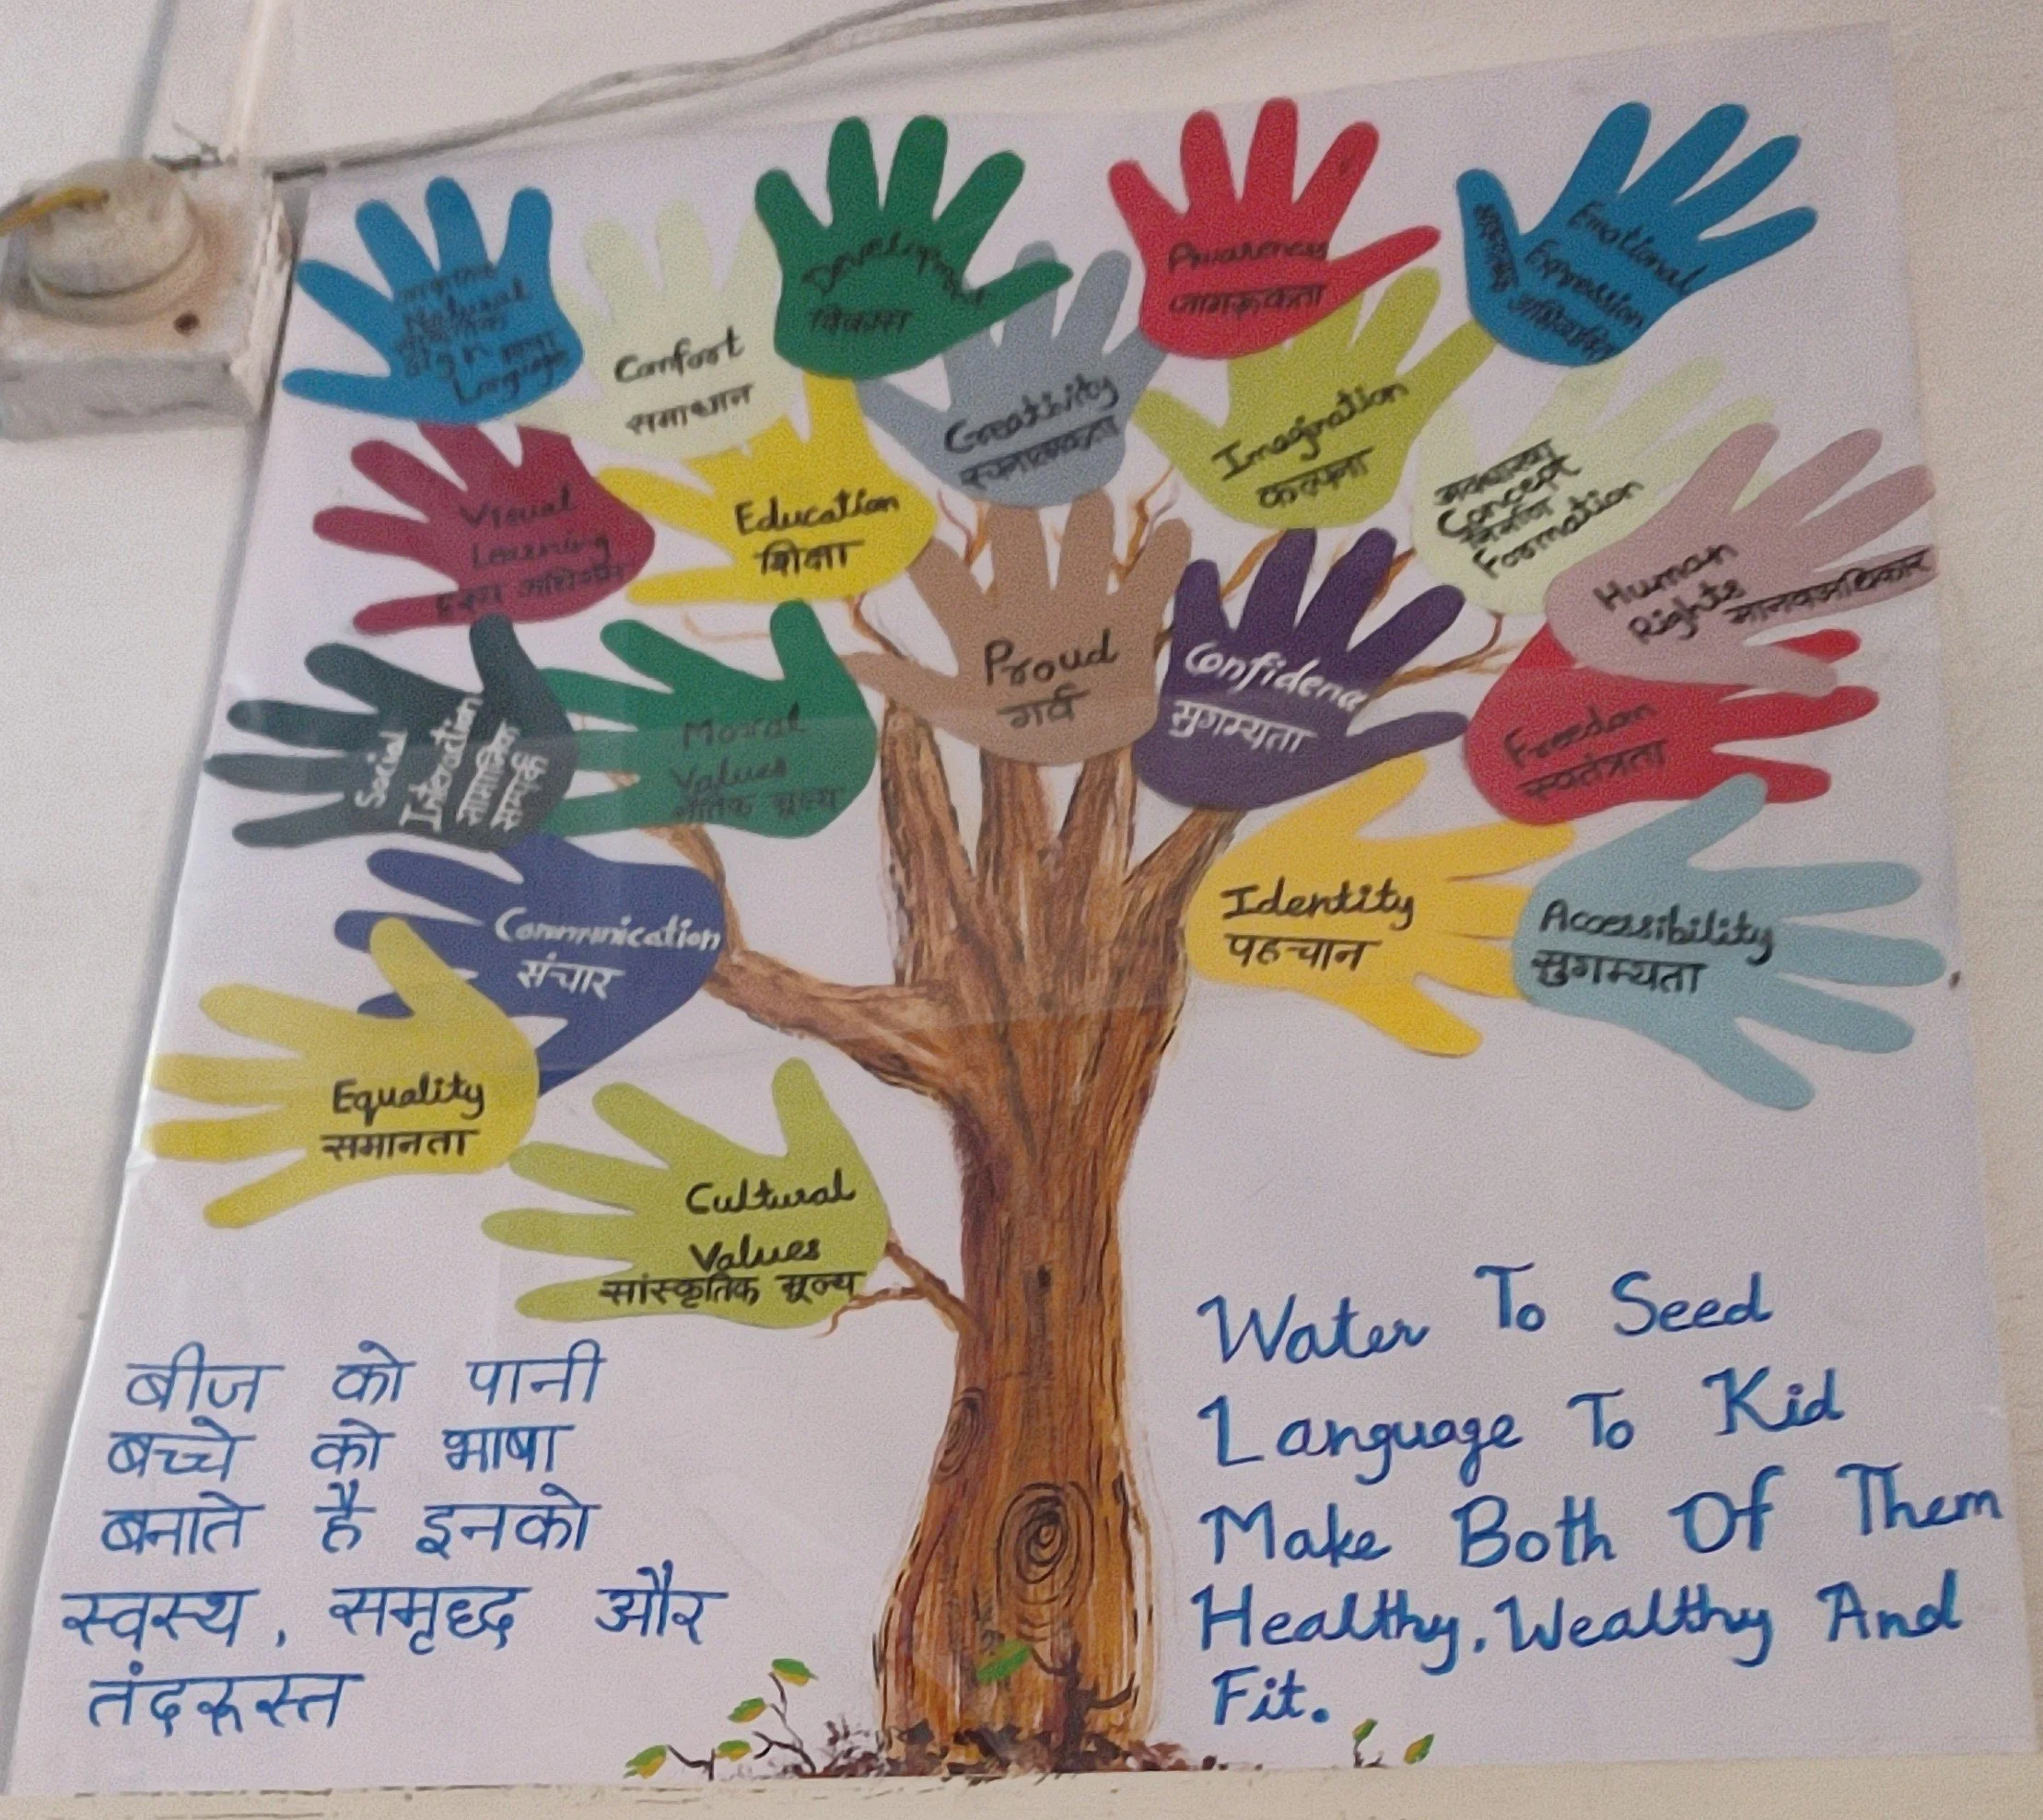 Natural
Sign भाषा
Language
Comfort
समाधान
Development
विकास
Awareness
जागरूकता
Emotional
Expression
अभिव्यक्ति
Creativity
रचनात्मकता
Imagination
कल्पना
अवधारणा
Concept
निर्माण
Formation
Visual
Learning
दृश्य अधिगम
Education
शिक्षा
Human
Rights
मानवअधिकार
Proud
गर्व
Confidence
सुगम्यता
Freedom
स्वतंत्रता
Social
Interaction
सामाजिक
सम्पर्क
Moral
Values
नैतिक मूल्य
Communication
संचार
Identity
पहचान
Accessibility
सुगम्यता
Equality
समानता
Cultural
Values
सांस्कृतिक मूल्य
बीज को पानी
बच्चे को भाषा
बनाते है इनको
स्वस्थ, समृद्ध और
तंदरूस्त
Water To Seed
Language To Kid
Make Both Of Them
Healthy, Wealthy And
Fit.